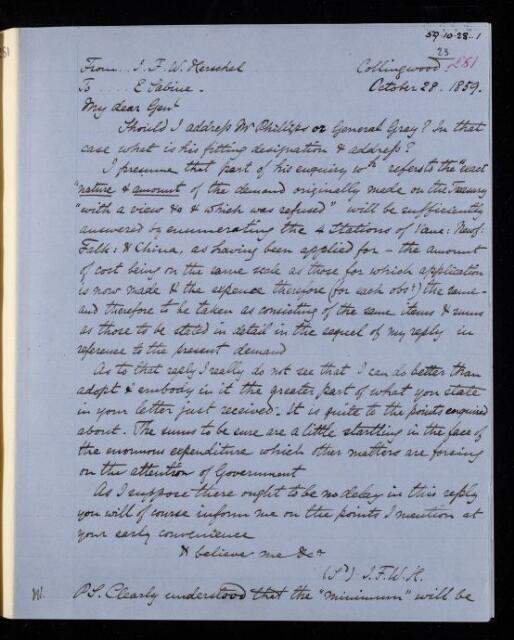 59-10-28-1
23
281
From .. J. F. W. Herschel Collingwood
To .... E Sabine - October 28. 1859.
My dear Genl
Should I address Mr Phillips or General Grey? In that
case what is his fitting designation & address?
I presume that part of his enquiry wh. refers to the "exact
"nature & amount of the demand originally made on the Treasury
"with a view &c & which was refused" will be sufficiently
answered by enumerating the 4 stations of Vanc: Newf:
Falk: & China, as having been applied for - the amount
of cost being on the same scale as those for which application
is now made & the expence therefore (for each obsy) the same -
and therefore to be taken as consisting of the same items & sums
as those to be stated in detail in the sequel of my reply in
reference to the present demand
As to that reply I really do not see that I can do better than
adopt & embody in it the greater part of what you state
in your letter just received. It is quite to the points enquired
about. The sums to be sure are a little startling in the face of
the enormous expenditure which other matters are forcing
on the attention of Government
As I suppose there ought to be no delay in this reply
you will of course inform me on the points I mention at
your early convenience
& believe me &c
(Sd) J.F.W.H.
PS. Clearly understood that the "minimum" will be